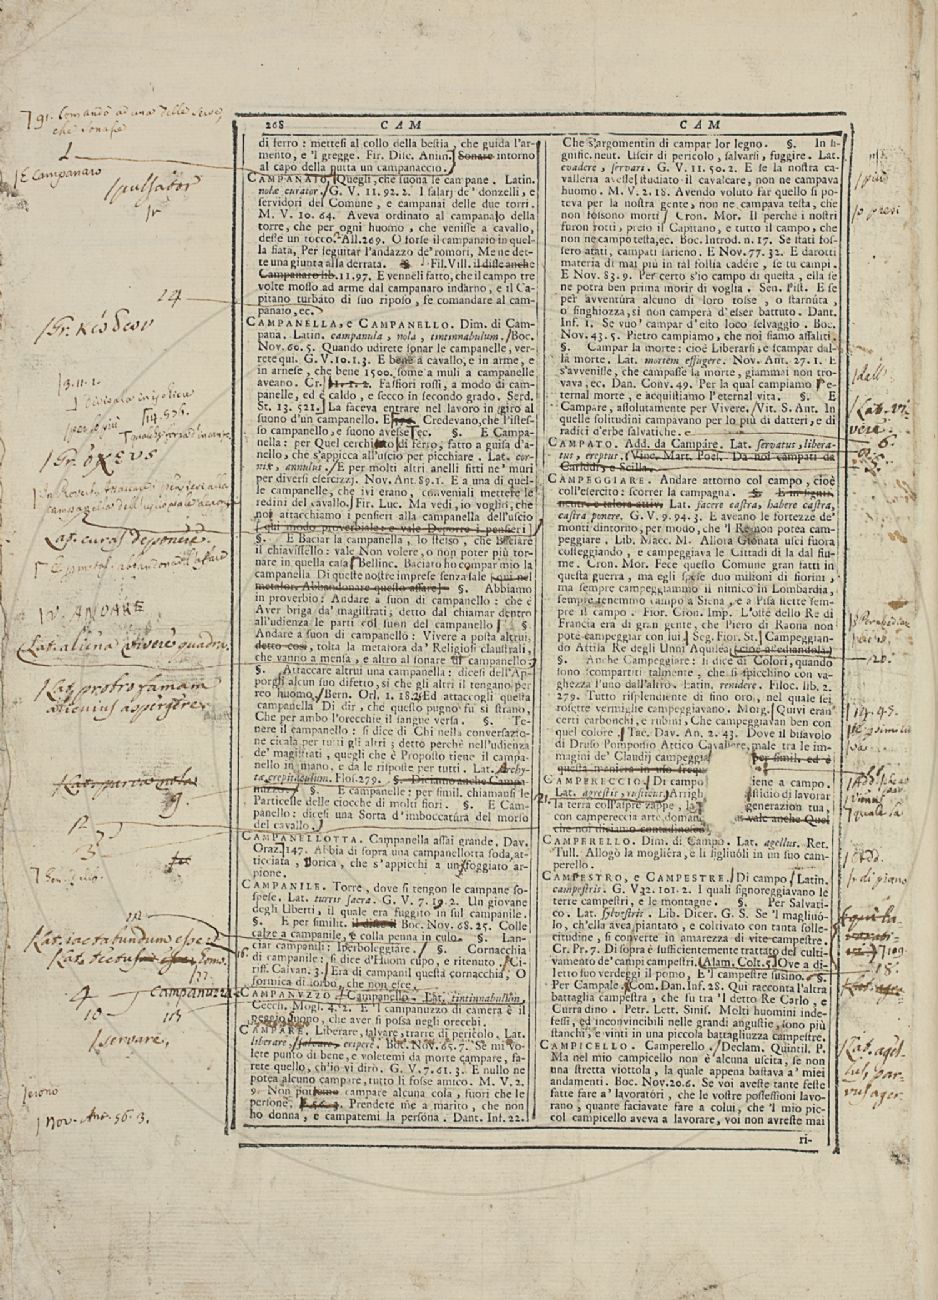 268 CAM CAM
di ferro: mettesi al collo della bestia, che guida l'ar-
mento, e 'l gregge. Fir. Disc. Anim. Sonare intorno
al capo della putta un campanaccio.
CAMPANAIO. Quegli, che suona le campane. Latin.
nolæ curator. G. V. 11. 92. 2. I salarj de' donzelli, e
servidori del Comune, e campanai delle due torri.
M. V. 10. 64. Aveva ordinato al campanajo della
torre, che per ogni huomo, che venisse a cavallo,
desse un tocco. All. 269. O forse il campanaio in quel-
la fiata, Per seguitar l'andazzo de' romori, Me ne det-
te una giunta alla derrata. §. Fil. Vill. il disse anche
Campanaro lib. 11. 97. E venneli fatto, che il campo tre
volte mosso ad arme dal campanaro indarno, e il Ca-
pitano turbato di suo riposo, fe comandare al cam-
panaio, ec.
CAMPANELLA, e CAMPANELLO. Dim. di Cam-
pana. Latin. campanula, nola, tintinnabulum. Boc.
Nov. 60. 5. Quando udirete sonar le campanelle, ver-
rete qui. G. V. 10. 1. 3. E bene a cavallo, e in arme, e
in arnese, che bene 1500. some a muli a campanelle
aveano. Cr. 11. 2. 2. Fassiori rossi, a modo di cam-
panelle, ed è caldo, e secco in secondo grado. Serd.
St. 13. 521. La faceva entrare nel lavoro in giro al
suono d'un campanello. E Credevano, che l'istes-
so campanello, e suono avesse, ec. §. E Campa-
nella: per Quel cerchietto di ferro, fatto a guisa d'a-
nello, che s'appicca all'uscio per picchiare. Lat. cor-
nix, annulus. E per molti altri anelli fitti ne' muri
per diversi esercizzj. Nov. Ant. 89. 1. E a una di quel-
le campanelle, che ivi erano, conveniali mettere le
redini del cavallo. Fir. Luc. Ma vedi, io vogliti, che
noi attacchiamo i pensieri alla campanella dell'uscio
(qui modo proverbiale: e vale Deporre i pensieri)
§. E Baciar la campanella, o lo stesso, che Baciare
il chiavistello: vale Non volere, o non poter più tor-
nare in quella casa. Bellinc. Baciato ho compar mio la
campanella Di queste nostre imprese senza sale (qui nel
metafor. Abbandonare quello affare) §. Abbiamo
in proverbio: Andare a suon di campanello: che è
Aver briga da' magistrati; detto dal chiamar dentro
all'udienza le parti col suon del campanello. §.
Andare a suon di campanello: Vivere a posta altrui,
detto così, tolta la metafora da' Religiosi claustrali,
che vanno a mensa, e altro al sonare di campanello.
§. Attaccare altrui una campanella: dicesi dell'Ap-
porgli alcun suo difetto, sì che gli altri il tengano per
reo huomo. Bern. Orl. 1. 18. 24. Ed attaccogli quella
campanella Di dir, che questo pugno fu sì strano,
Che per ambo l'orecchie il sangue versa. §. Te-
nere il campanello: si dice di Chi nella conversazio-
ne cicala per tutti gli altri; detto perchè nell'udienza
de' magistrati, quegli che è Proposto tiene il campa-
nello in mano, e da le risposte per tutti. Lat. Archy-
tæ crepitaculum. Flos. 279. §. Diciamo anche Campa-
nuzzo. §. E campanelle: per simil. chiamansi le
Particelle delle ciocche di molti fiori. §. E Cam-
panello: dicesi una Sorta d'imboccatura del morso
del cavallo.
CAMPANELLOTTA. Campanella assai grande. Dav.
Oraz. 147. Abbia di sopra una campanellotta soda, at-
ticciata, sorica, che s'appicchi a un foggiato ar-
pione.
CAMPANILE. Torre, dove si tengon le campane so-
spese. Lat. turris sacra. G. V. 7. 19. 2. Un giovane
degli Uberti, il quale era fuggito in sul campanile.
§. E per similit. il disse Boc. Nov. 68. 25. Colle
calze a campanile, e colla penna in culo. §. Lan-
ciar campanili: Iperboleggiare. §. Cornacchia
di campanile: si dice d'Huom cupo, e ritenuto. Ci-
riff. Calvan. 3. Era di campanil questa cornacchia, O
formica di sorbo, che non esce.
CAMPANUZZO. Campanello. Lat. tintinnabulum.
Cecch. Mogl. 4. 2. E 'l campanuzzo di camera è il
peggio suono, che aver si possa negli orecchi.
CAMPARE. Liberare, salvare, trarre di pericolo. Lat.
liberare, servare, eripere. Boc. Nov. 65. 7. Se mi vo-
lete punto di bene, e voletemi da morte campare, fa-
rete quello, ch'io vi dirò. G. V. 7. 61. 3. E nullo ne
potea alcuno campare, tutto li fosse amico. M. V. 2.
9. Non pottono campare alcuna cosa, fuori che le
persone. Prendete me a marito, che non
ho donna, e campatemi la persona. Dant. Inf. 22.
Che s'argomentin di campar lor legno. §. In si-
gnific. neut. Uscir di pericolo, salvarsi, fuggire. Lat.
evadere, servari. G. V. 11. 50. 2. E se la nostra ca-
valleria avesse studiato il cavalcare, non ne campava
huomo. M. V. 2. 18. Avendo voluto far quello si po-
teva per la nostra gente, non ne campava testa, che
non fossono morti. Cron. Mor. Il perchè i nostri
furon rotti, preso il Capitano, e tutto il campo, che
non ne campò testa, ec. Boc. Introd. n. 17. Se stati fos-
sero atati, campati sarieno. E Nov. 77. 32. E darotti
materia di mai più in tal follia cadere, se tu campi.
E Nov. 83. 9. Per certo s'io campo di questa, ella se
ne potra ben prima morir di voglia. Sen. Pist. E se
per avventura alcuno di loro tosse, o starnuta,
o singhiozza, si non camperà d'esser battuto. Dant.
Inf. 1. Se vuo' campar d'esto loco selvaggio. Boc.
Nov. 43. 5. Pietro campiamo, che noi siamo assaliti.
§. Campar la morte: cioè Liberarsi, e scampar dal-
la morte. Lat. mortem effugere. Nov. Ant. 27. 1. E
s'avvenisse, che campasse la morte, giammai non tro-
vava, ec. Dan. Conv. 49. Per la qual campiamo l'e-
ternal morte, e acquistiamo l'eternal vita. §. E
Campare, assolutamente per Vivere. Vit. S. Ant. In
quelle solitudini campavano per lo più di datteri, e di
radici d'erbe salvatiche.
CAMPATO. Add. da Campare. Lat. servatus, libera-
tus, ereptus. Vinc. Mart. Poes. Da noi campati da
Cariddi, e Scilla.
CAMPEGGIARE. Andare attorno col campo, cioè
coll'esercito: scorrer la campagna. §. E in signif.
neutr. e talora attiv. Lat. facere castra, habere castra,
castra ponere. G. V. 9. 94. 3. E aveano le fortezze de'
monti dintorno, per modo, che 'l Re non potea cam-
peggiare. Lib. Macc. M. Allora Gionata uscì fuora
costeggiando, e campeggiava le Cittadi di la dal fiu-
me. Cron. Mor. Fece questo Comune gran fatti in
questa guerra, ma egli spese duo milioni di fiorini,
ma sempre campeggiammo il nimico in Lombardia,
sempre tenemmo campo a Siena, e a Pisa stette sem-
pre il campo. Fior. Cron. Imp. L'oste dello Re di
Francia era di gran gente, che Piero di Raona non
potè campeggiar con lui. Seg. Fior. St. Campeggian-
do Attila Re degli Unni Aquilea (cioè assediandola)
§. Anche Campeggiare: si dice di Colori, quando
sono scompartiti talmente, che si spicchino con va-
ghezza l'uno dall'altro. Latin. renidere. Filoc. lib. 2.
279. Tutto risplendiente di fino oro, nel quale sei
rosette vermiglie campeggiavano. Morg. Quivi eran
certi carbonchi, e rubini, Che campeggiavan ben con
quel colore. Tac. Dav. An. 2. 43. Dove il bisavolo
di Druso Pomponio Attico Cavaliere, male tra le im-
magini de' Claudj campeggia per simil. ed è
questa maniera in uso freq
CAMPERECCIO. Di campo iene a campo.
Lat. agrestis, rusticus. Arrigh. stidio di lavorar
la terra coll'aspre zappe, la generazion tua,
con campereccia arte, doman vale anche Quel
che noi diciamo contadinesco.
CAMPERELLO. Dim. di Campo. Lat. agellus. Ret.
Tull. Allogò la mogliera, e li figliuoli in un suo cam-
perello.
CAMPESTRO, e CAMPESTRE. Di campo. Latin.
campestris. G. V. 12. 101. 2. I quali signoreggiavano le
terre campestri, e le montagne. §. Per Salvati-
co. Lat. sylvestris. Lib. Dicer. G. S. Se 'l magliuo-
lo, ch'ella avea piantato, e coltivato con tanta solle-
citudine, si converte in amarezza di vite campestre.
Cr. Pr. 7. Di sopra è sufficientemente trattato del culti-
vamento de' campi campestri. Alam. Colt. 5. Ove a di-
letto suo verdeggi il pomo, E 'l campestre susino. §.
Per Campale. Com. Dan. Inf. 28. Qui racconta l'altra
battaglia campestra, che fu tra 'l detto Re Carlo, e
Curradino. Petr. Lett. Sinif. Molti huomini inde-
fessi, ed inconvincibili nelle grandi angustie, sono più
stanchi, e vinti in una piccola battagliuzza campestre.
CAMPICELLO. Camperello. Declam. Quintil. P.
Ma nel mio campicello non è alcuna uscita, se non
una stretta viottola, la quale appena bastava a' miei
andamenti. Boc. Nov. 20. 6. Se voi aveste tante feste
fatte fare a' lavoratori, che le vostre possessioni lavo-
rano, quante faciavate fare a colui, che 'l mio pic-
col campicello aveva a lavorare, voi non avreste mai
ri-
E Campanaro
pulsator
14
Gr. κώδων
Lat. curas deponere
V. ANDARE
Lat. aliena vivere quadra
Lat. probro famam
alicuius aspergere
9.
12
3
4 Campanuzza
10
servare,
Nov. Ant. 56. 3.
presi
dell'
Lat. vi-
vere
6.
20.
18.
Lat. agel-
lus, par-
vus ager.